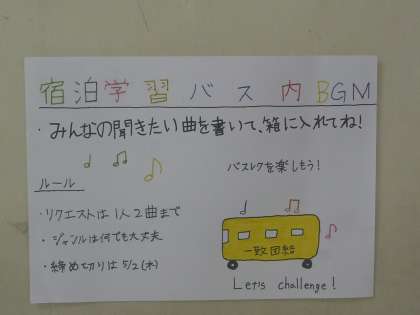 宿泊学習 バス 内 BGM
・みんなの聞きたい曲を書いて、箱に入れてね!
ルール
・リクエストは1人2曲まで
・ジャンルは何でも大丈夫
・締め切りは5/2(木)
バスレクを楽しもう!
一致団結
Let's challenge!